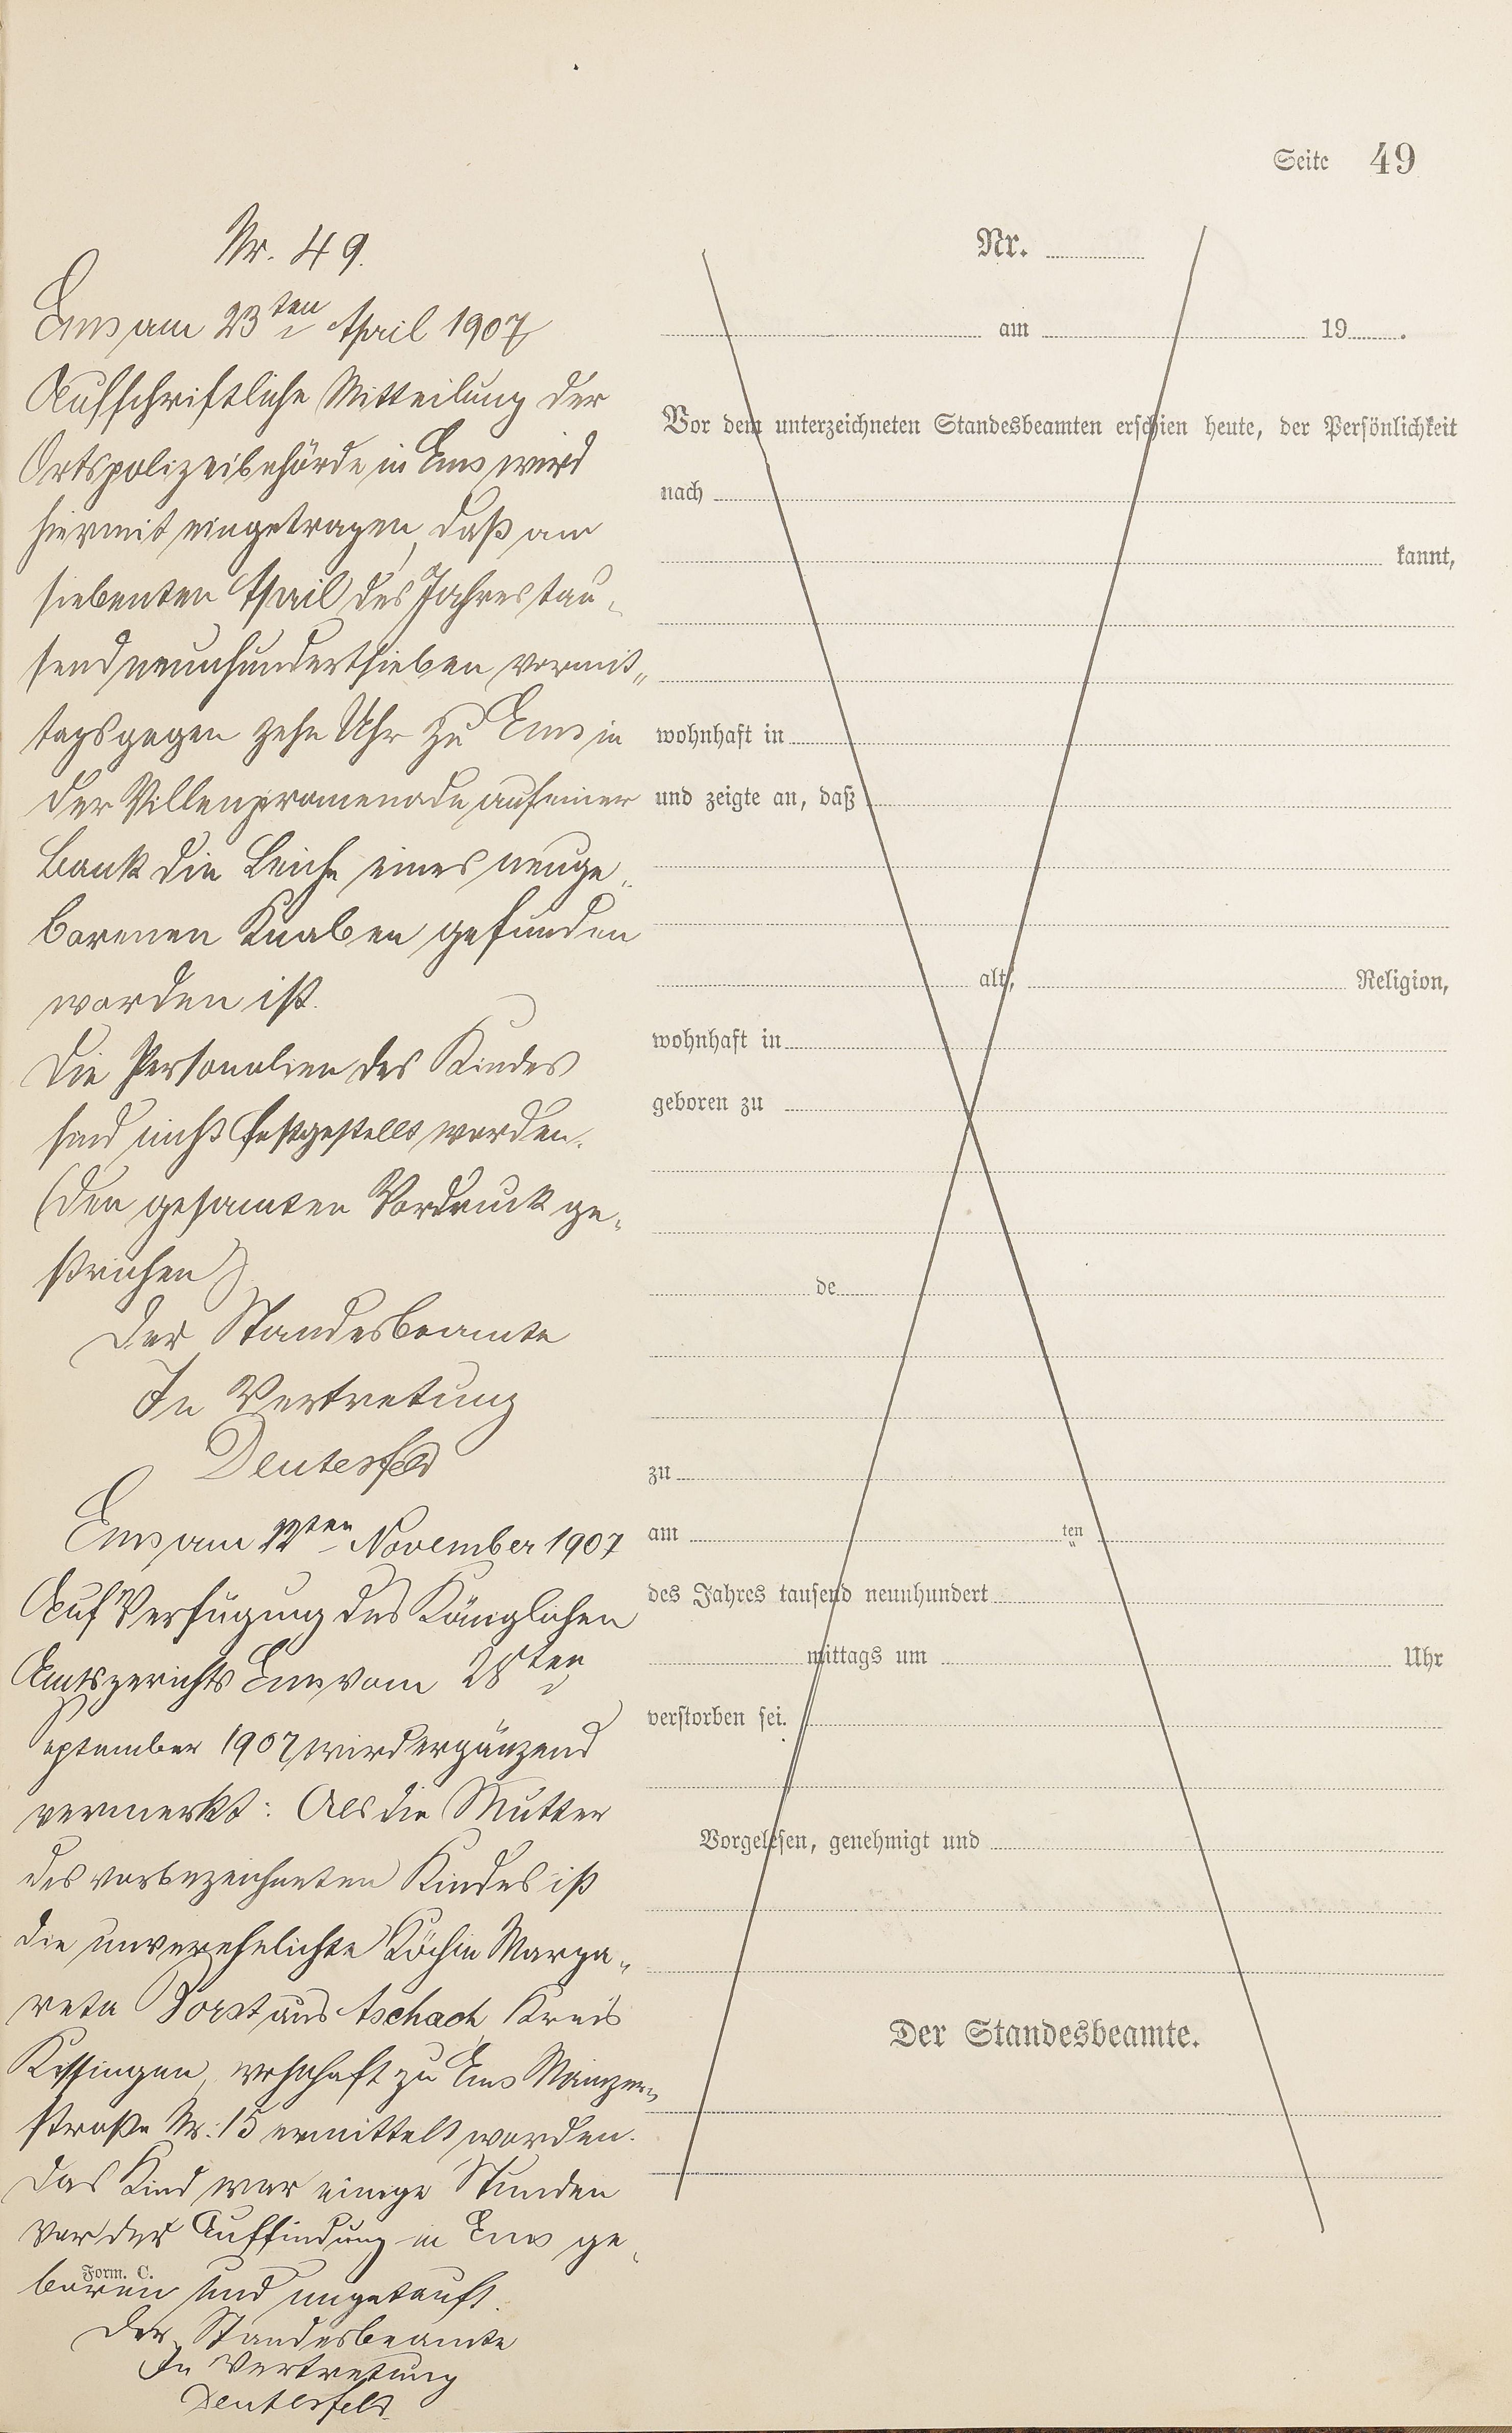 Seite 49
Nr. 49.
Ems am 23ten April 1907
Auf schriftliche Mitteilung der
Ortspolizeibehörde in Ems wird
hiermit eingetragen, daß am
siebenten April des Jahres tau-
send neunhundertsieben vormit-
tags gegen zehn Uhr zu Ems in
der Villenpromenade auf einer
Bank die Leiche eines neuge-
borenen Knaben gefunden
worden ist.
Die Personalien des Kindes
sind nicht festgestellt worden.
(Den gesamten Vordruck ge-
strichen)
Der Standesbeamte
In Vertretung
Deutesfeld
Ems am 12ten November 1907
Auf Verfügung des Königlichen
Amtsgerichts Ems vom 28ten
September 1907 wird ergänzend
vermerkt: Als die Mutter
des vorbezeichneten Kindes ist
die unverehelichte Köchin Marga-
reta aus Aschach, Kreis
Kissingen, wohnhaft zu Ems Mainzer-
straße Nr. 15 ermittelt worden.
Das Kind war einige Stunden
vor der Auffindung in Ems ge-
Form. C.
boren und ungetauft.
Der Standesbeamte
In Vertretung
Deutesfeld
Nr.
am 19 .
Vor dem unterzeichneten Standesbeamten erschien heute, der Persönlichkeit
nach
kannt,
wohnhaft in
und zeigte an, daß
alt, Religion,
wohnhaft in
geboren zu
de
zu
am ten
des Jahres tausend neunhundert
mittags um Uhr
verstorben sei.
Vorgelesen, genehmigt und
Der Standesbeamte.